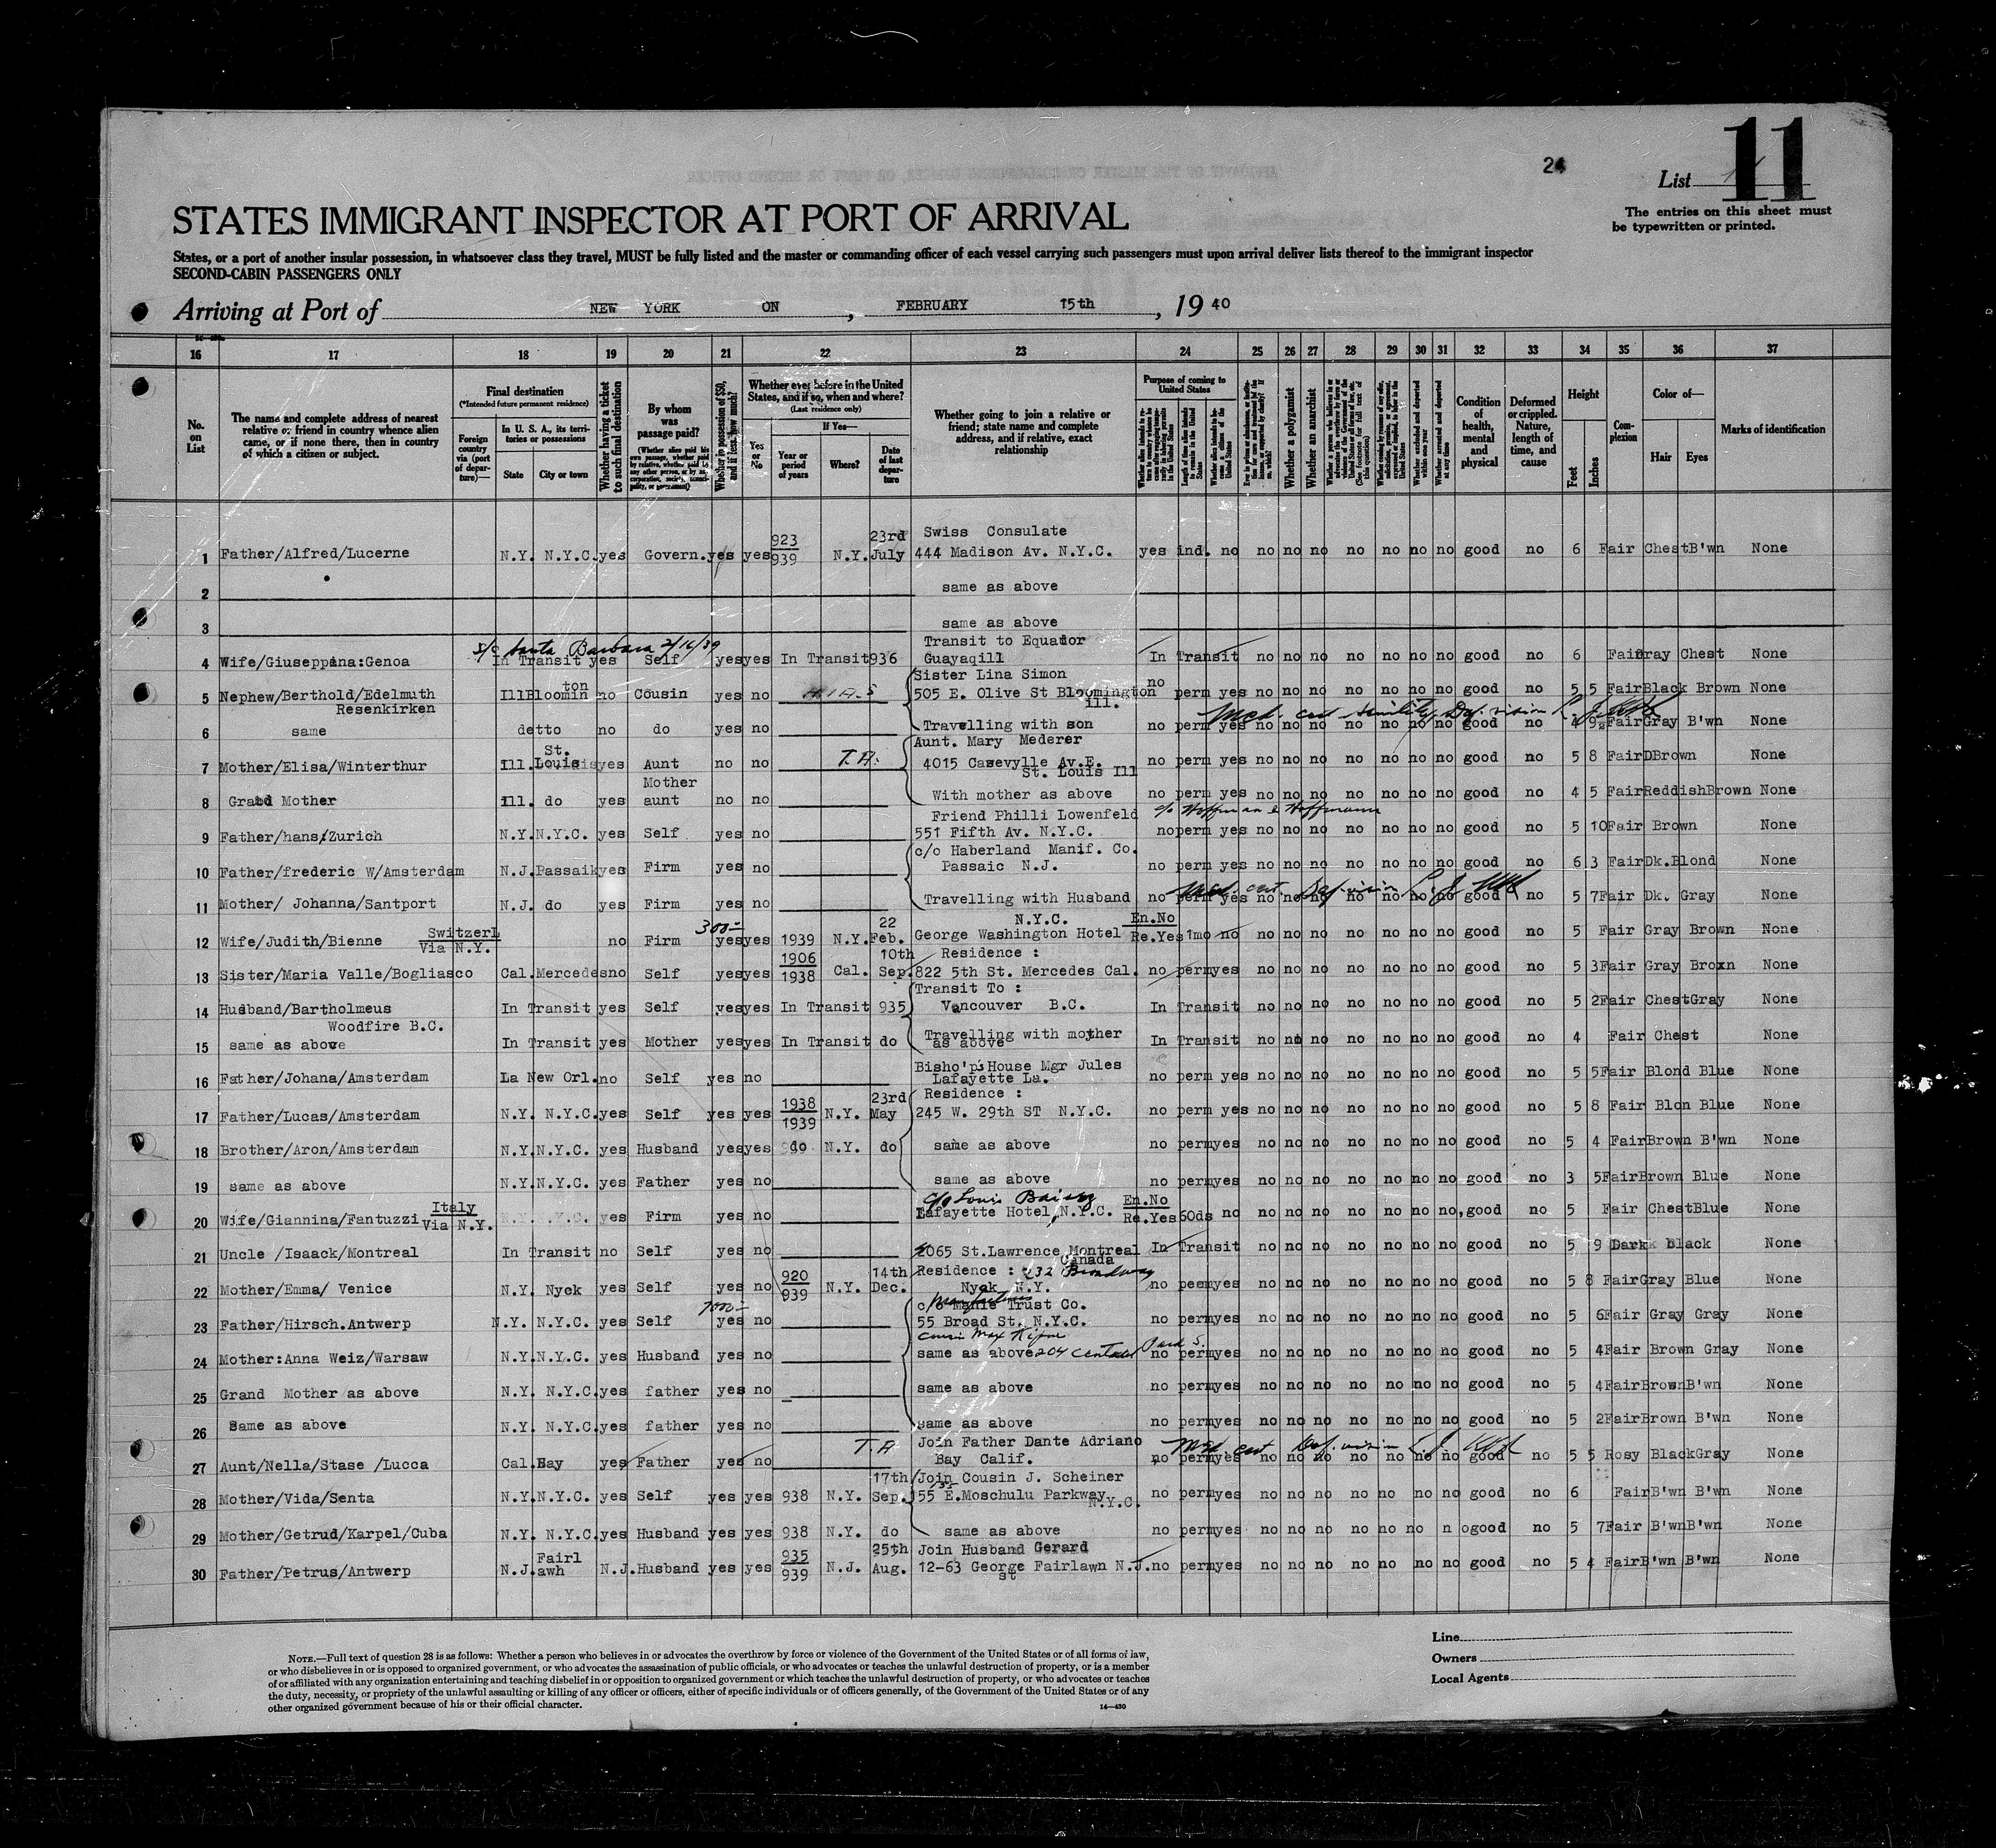 24
List 11
The entries on this sheet must
be typewritten or printed.
STATES IMMIGRANT INSPECTOR AT PORT OF ARRIVAL
States, or a port of another insular possession, in whatsoever class they travel, MUST be fully listed and the master or commanding officer of each vessel carrying such passengers must upon arrival deliver lists thereof to the immigrant inspector
SECOND-CABIN PASSENGERS ONLY
Arriving at Port of NEW YORK ON, FEBRUARY 15th, 19 40
16 17 18 19 20 21 22 23 24 25 26 27 28 29 30 31 32 33 34 35 36 37
No. on List
The name and complete address of nearest relative or friend in country whence alien came, or if none there, then in country of which a citizen or subject.
Final destination
(*Intended future permanent residence)
Foreign country via (port of departure)—
In U. S. A., its territories or possessions
State
City or town
Whether having a ticket to such final destination
By whom was passage paid?
Whether in possession of $50, and if less, how much?
Whether ever before in the United States, and if so, when and where?
(Last residence only)
Yes or No
If Yes—
Year or period of years
Where?
Date of last departure
Whether going to join a relative or friend; state name and complete address, and if relative, exact relationship
Purpose of coming to United States
Whether a polygamist
Whether an anarchist
Condition of health, mental and physical
Deformed or crippled. Nature, length of time, and cause
Height
Feet
Inches
Complexion
Color of—
Hair
Eyes
Marks of identification
1 Father/Alfred/Lucerne N.Y. N.Y.C. yes Govern. yes yes 923 939 N.Y. 23rd July Swiss Consulate 444 Madison Av. N.Y.C. yes ind. no no no no no no no no good no 6 Fair Chest B'wn None
2 same as above
3 same as above
s/s Santa Barbara 2/16/39
4 Wife/Giuseppina:Genoa In Transit yes Self yes yes In Transit 936 Transit to Equador Guayaqill In Transit no no no no no no no good no 6 Fair Gray Chest None
5 Nephew/Berthold/Edelmuth Resenkirken Ill Bloomington no Cousin yes no H.I.A.S Sister Lina Simon 505 E. Olive St Bloomington Ill. no perm yes no no no no no no no good no 5 5 Fair Black Brown None
6 same detto no do yes no Travelling with son no perm yes no no no no no no no good no 4 9½ Fair Gray B'wn None
Med. cert senility Def. vision
7 Mother/Elisa/Winterthur Ill. St. Louis yes Aunt no no T.A. Aunt. Mary Mederer 4015 Casevylle Av.E. St. Louis Ill no perm yes no no no no no no no good no 5 8 Fair DBrown None
8 Grand Mother Ill. do yes Mother aunt no no With mother as above no perm yes no no no no no no no good no 4 5 Fair Reddish Brown None
9 Father/hans/Zurich N.Y. N.Y.C. yes Self yes no Friend Philli Lowenfeld 551 Fifth Av. N.Y.C. c/o Hoffman & Hoffmann no perm yes no no no no no no no good no 5 10 Fair Brown None
10 Father/frederic W/Amsterdam N.J. Passaik yes Firm yes no c/o Haberland Manif. Co. Passaic N.J. no perm yes no no no no no no no good no 6 3 Fair Dk.Blond None
11 Mother/ Johanna/Santport N.J. do yes Firm yes no Travelling with Husband no perm yes no no no no no no no good no 5 7 Fair Dk. Gray None
Med. cert Def vision
12 Wife/Judith/Bienne Switzerl Via N.Y. no Firm 300- yes yes 1939 N.Y. 22 Feb. N.Y.C. George Washington Hotel En.No Re.Yes 1mo no no no no no no no no good no 5 Fair Gray Brown None
13 Sister/Maria Valle/Bogliasco Cal. Mercedes no Self yes yes 1906 1938 Cal. 10th Sep. Residence : 822 5th St. Mercedes Cal. no perm yes no no no no no no no good no 5 3 Fair Gray Broxn None
14 Husband/Bartholmeus Woodfire B.C. In Transit yes Self yes yes In Transit 935 Transit To : Vancouver B.C. In Transit no no no no no no no good no 5 2 Fair Chest Gray None
15 same as above In Transit yes Mother yes yes In Transit do Travelling with mother as above In Transit no no no no no no no good no 4 Fair Chest None
16 Father/Johana/Amsterdam La New Orl. no Self yes no Bisho'p's House Mgr Jules Lafayette La. no perm yes no no no no no no no good no 5 5 Fair Blond Blue None
17 Father/Lucas/Amsterdam N.Y. N.Y.C. yes Self yes yes 1938 1939 N.Y. 23rd May Residence : 245 W. 29th ST N.Y.C. no perm yes no no no no no no no good no 5 8 Fair Blon Blue None
18 Brother/Aron/Amsterdam N.Y. N.Y.C. yes Husband yes yes do N.Y. do same as above no perm yes no no no no no no no good no 5 4 Fair Brown B'wn None
19 same as above N.Y. N.Y.C. yes Father yes no same as above no perm yes no no no no no no no good no 3 5 Fair Brown Blue None
20 Wife/Giannina/Fantuzzi Italy Via N.Y. N.Y.C. yes Firm yes no c/o Louis Lafayette Hotel N.Y.C. En.No Re.Yes 60ds no no no no no no no no, good no 5 Fair Chest Blue None
21 Uncle /Isaack/Montreal In Transit no Self yes no 2065 St.Lawrence Montreal Canada In Transit no no no no no no no good no 5 9 Dark black None
22 Mother/Emma/ Venice N.Y. Nyck yes Self yes no 920 939 N.Y. 14th Dec. Residence : 232 Broadway Nyck N.Y. no perm yes no no no no no no no good no 5 8 Fair Gray Blue None
23 Father/Hirsch.Antwerp N.Y. N.Y.C. yes Self 7000- yes no c/o Manufacturers Trust Co. 55 Broad St. N.Y.C. no perm yes no no no no no no no good no 5 6 Fair Gray Gray None
24 Mother:Anna Weiz/Warsaw N.Y. N.Y.C. yes Husband yes no same as above 204 Central Park S. no perm yes no no no no no no no good no 5 4 Fair Brown Gray None
25 Grand Mother as above N.Y. N.Y.C. yes father yes no same as above no perm yes no no no no no no no good no 5 4 Fair Brown B'wn None
26 Same as above N.Y. N.Y.C. yes father yes no same as above no perm yes no no no no no no no good no 5 2 Fair Brown B'wn None
27 Aunt/Nella/Stase /Lucca Cal. Bay yes Father yes no T.A Join Father Dante Adriano Bay Calif. no perm yes no no no no no no no good no 5 5 Rosy Black Gray None
Med. cert Def. vision
28 Mother/Vida/Senta N.Y. N.Y.C. yes Self yes yes 938 N.Y. 17th Sep. Join Cousin J. Scheiner 155 E.Moschulu Parkway N.Y.C. no perm yes no no no no no no no good no 6 Fair B'wn B'wn None
29 Mother/Getrud/Karpel/Cuba N.Y. N.Y.C. yes Husband yes yes 938 N.Y. do same as above no perm yes no no no no no no n ogood no 5 7 Fair B'wn B'wn None
30 Father/Petrus/Antwerp N.J. Fairl awh N.J. Husband yes yes 935 939 N.J. 25th Aug. Join Husband Gerard 12-63 George st Fairlawn N.J. no perm yes no no no no no no no good no 5 4 Fair B'wn B'wn None
NOTE.—Full text of question 28 is as follows: Whether a person who believes in or advocates the overthrow by force or violence of the Government of the United States or of all forms of law,
or who disbelieves in or is opposed to organized government, or who advocates the assassination of public officials, or who advocates or teaches the unlawful destruction of property, or is a member
of or affiliated with any organization entertaining and teaching disbelief in or opposition to organized government or which teaches the unlawful destruction of property, or who advocates or teaches
the duty, necessity, or propriety of the unlawful assaulting or killing of any officer or officers, either of specific individuals or of officers generally, of the Government of the United States or of any
other organized government because of his or their official character.
14—430
Line
Owners
Local Agents